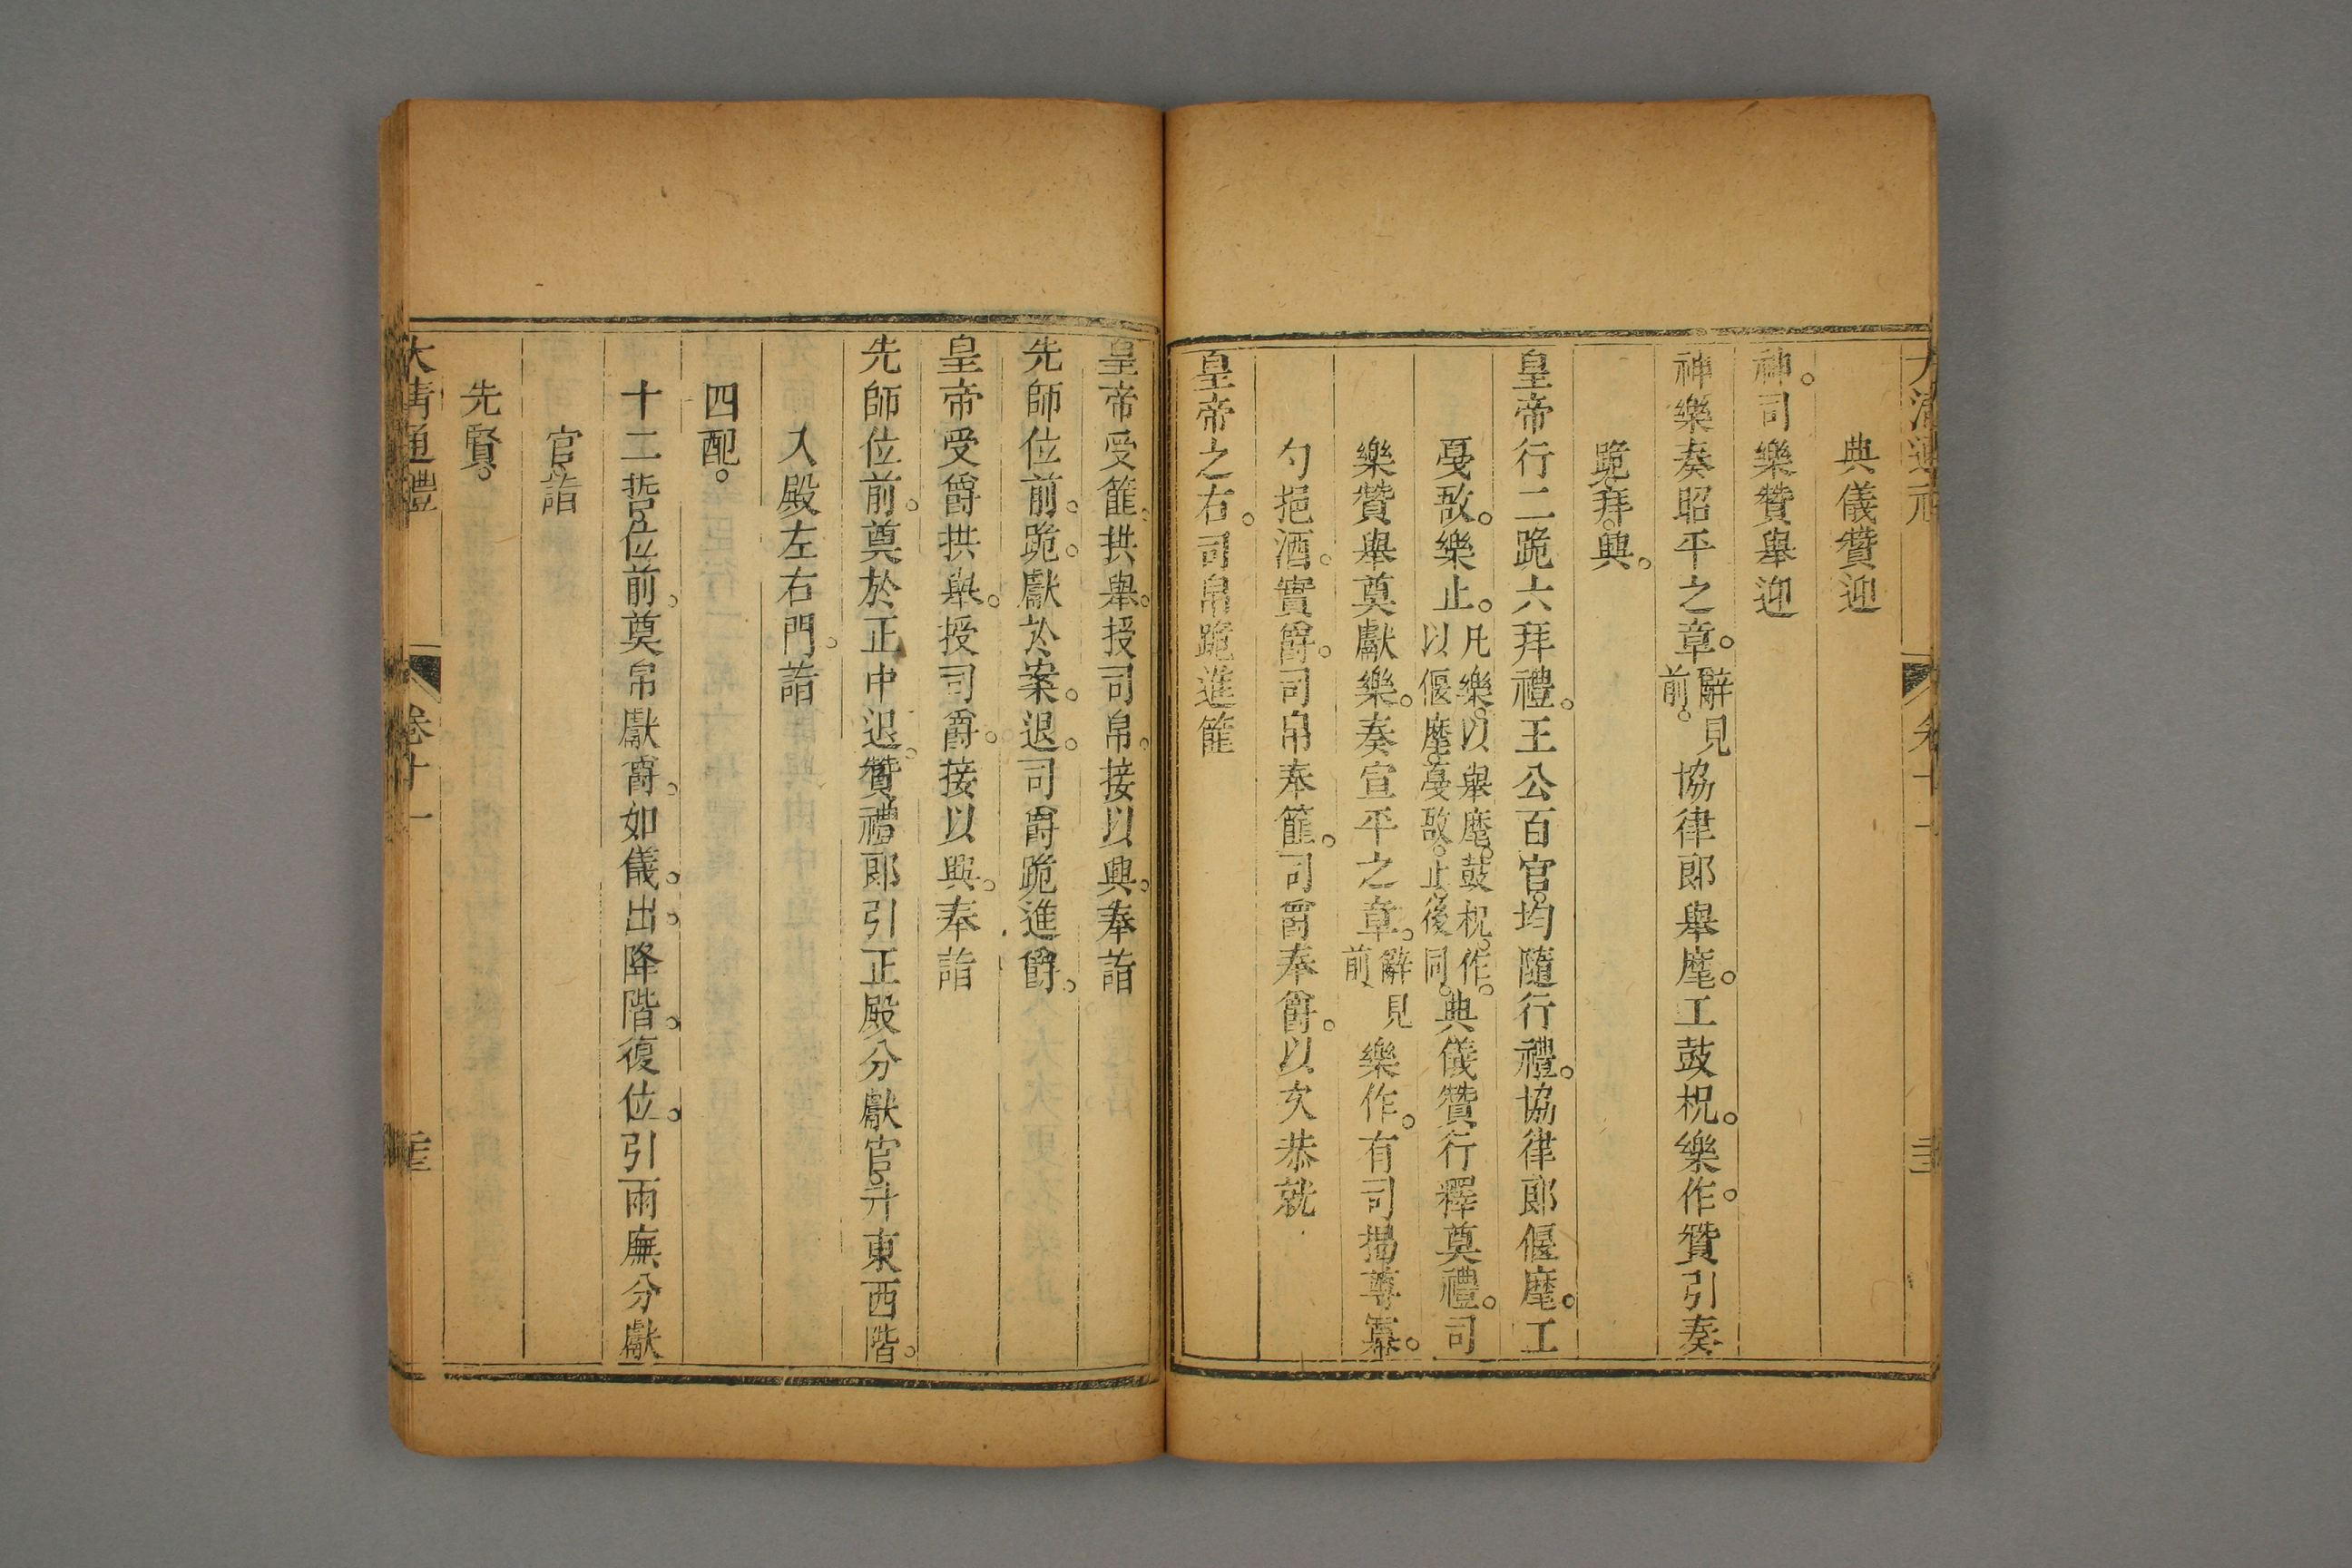 典儀贊迎
神。司樂贊舉迎
神樂奏昭平之章。辭見前。協律郎舉麾。工鼓柷。樂作。贊引奏
跪。拜。興。
皇帝行二跪六拜禮。王公百官。均隨行禮。協律郎偃麾。工
戞敔。樂止。凡樂。以舉麾。鼓柷。作。以偃麾。戞敔。止。後同。典儀贊行釋奠禮。司
樂贊舉奠獻樂。奏宣平之章。辭見前。樂作。有司揭尊冪。
勺挹酒。實爵。司帛奉篚。司爵奉爵。以次恭就
皇帝之右。司帛跪進篚
皇帝受篚。拱舉。授司帛。接以興。奉詣
先師位前。跪。獻於案。退。司爵跪進爵。
皇帝受爵拱舉。授司爵。接以興。奉詣
先師位前。奠於正中。退。贊禮郎引正殿分獻官。升東西階。
入殿左右門。詣
四配。
十二哲。位前。奠帛獻爵。如儀。出。降階。復位。引兩廡分獻
官。詣
先賢。
大清通禮 卷十一